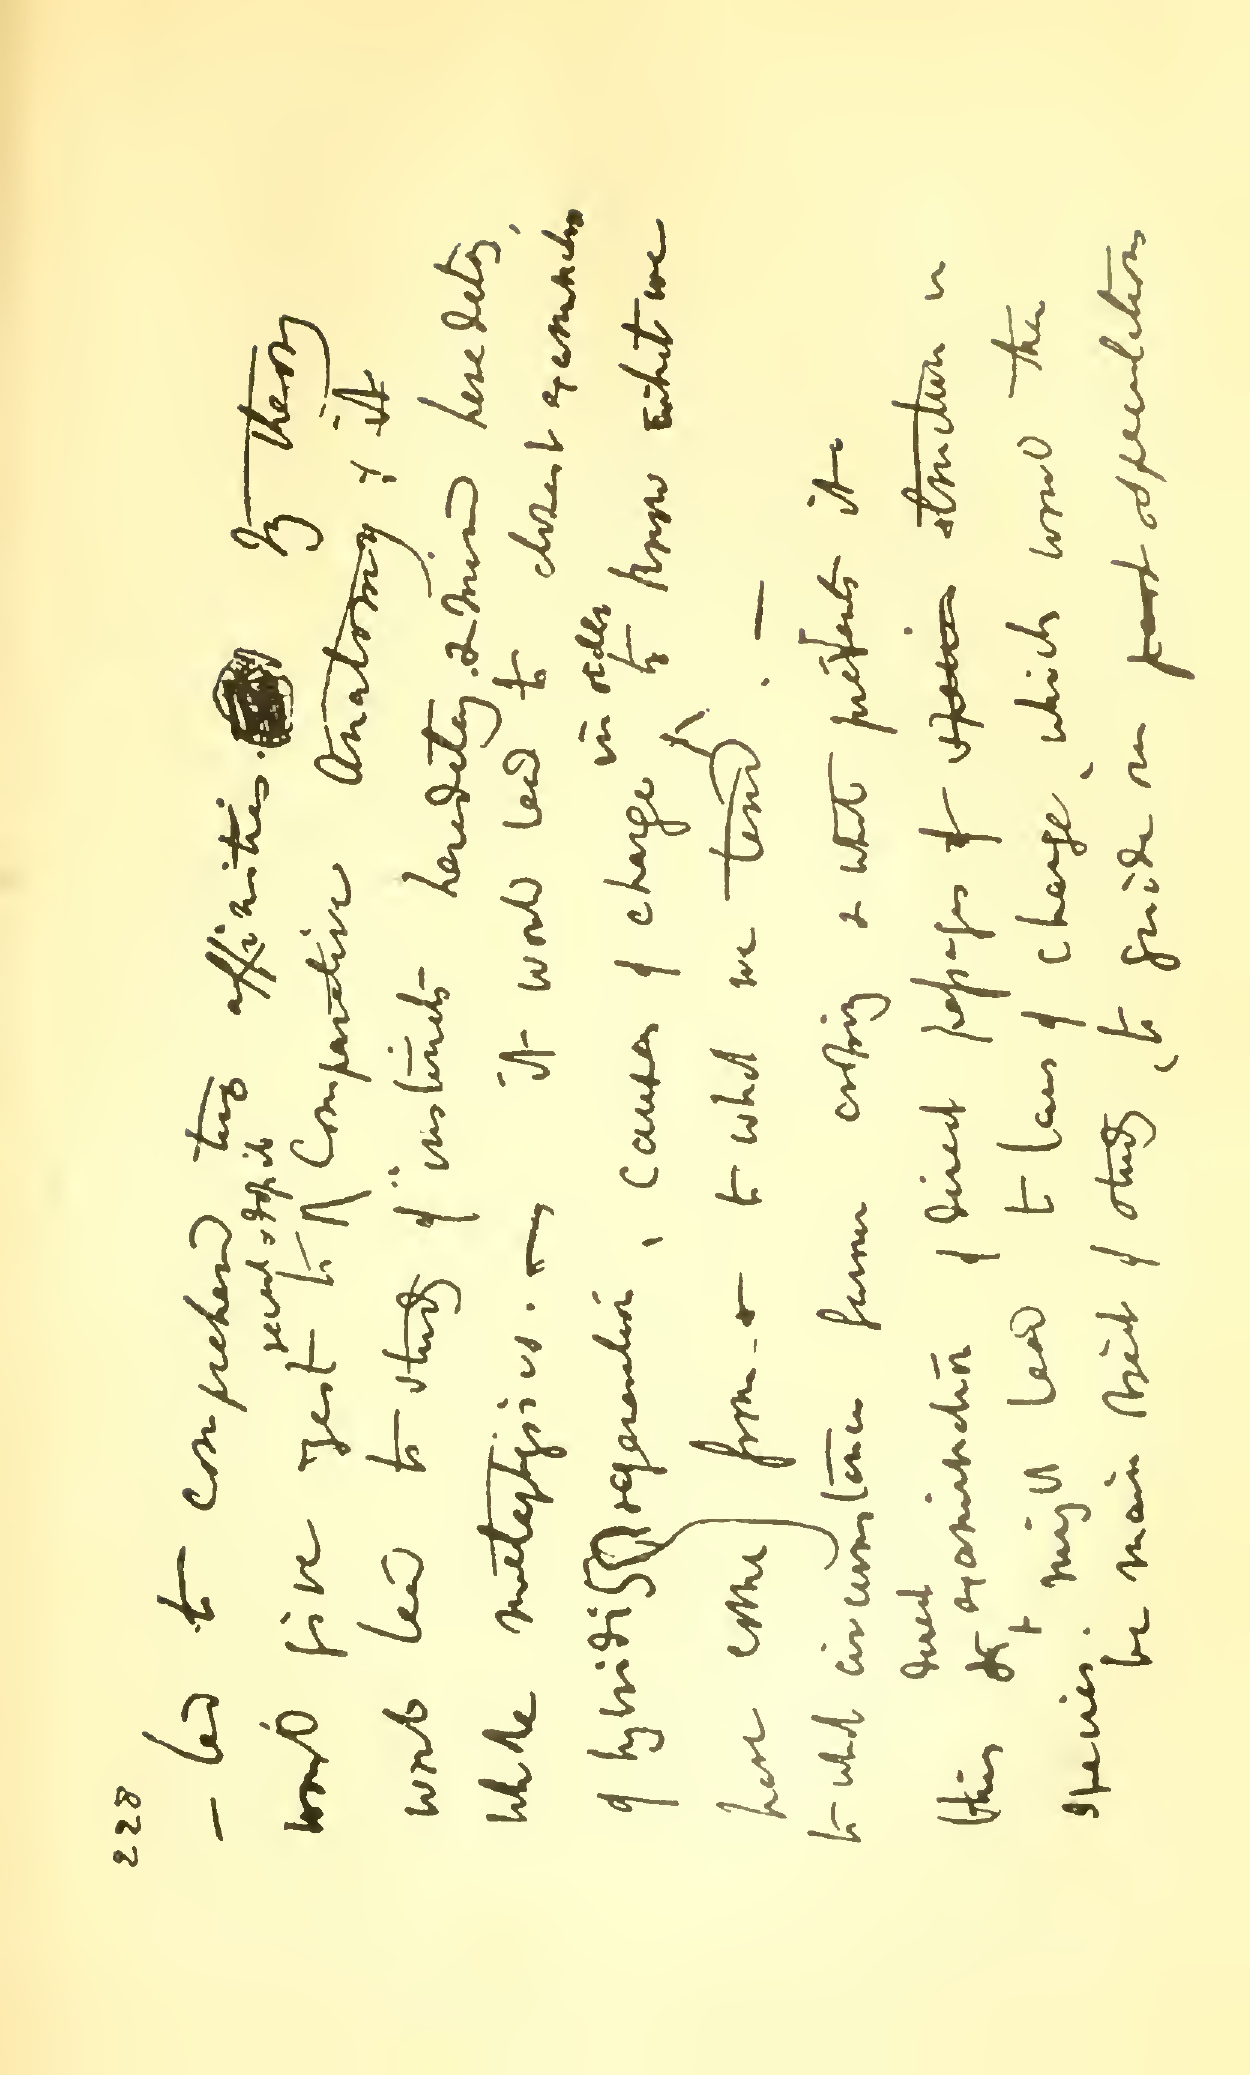 228
— led to comprehend true affinities. My theory
would give zest to recent & Fossil Comparative Anatomy, & it
would lead to study of instincts heredity. & mind heredity,
whole metaphysics. — it would lead to closest examination
of hybridity regeneration, causes of change in order to know what we
have come from. & to what we tend. —
to what circumstances favour crossing & what prevents it —
this & direct examination of direct passages of species structure in
species. & might lead to laws of change, which would then
be main object of study, to guide our past speculations